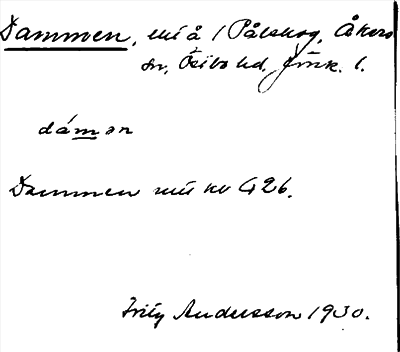 Dammen, utj å / Pålskog, Åkers
sn, Östbo hd. Jönk. l.
dámən
Dammen utj kv G 26.
Fritz Andersson 1930.